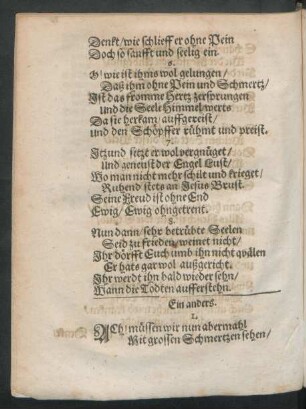 Denkt / wie schlieff er ohne Pein
Doch so saufft und seelig ein.
6.
O! wie ist ihms wol gelungen /
Daß ihm ohne Pein und Schmertz /
Ist das fromme Hertz zersprungen
und die Seele Himmelwerts
Da sie herkam / auffgereist /
und den Schöpffer rühmt und preist.
7.
Itzund sitzt er wol vergnüget /
und geneust der Engel Lust /
Wo man nicht mehr schilt und krieget /
Ruhend stets an Jesus Brust.
Seine Freud ist ohne End
Ewig / Ewig ohngetrent.
8.
Nun dann / sehr betrübte Seelen
Seid zu frieden / weinet nicht /
Ihr dörfft Euch umb ihn nicht qvälen
Er hats gar wol außgericht.
Ihr werdt ihn bald wieder sehn /
Wann die Todten aufferstehn.
Ein anders.
1.
ACh! müssen wir nun abermahl
Mit grossen Schmertzen sehen /